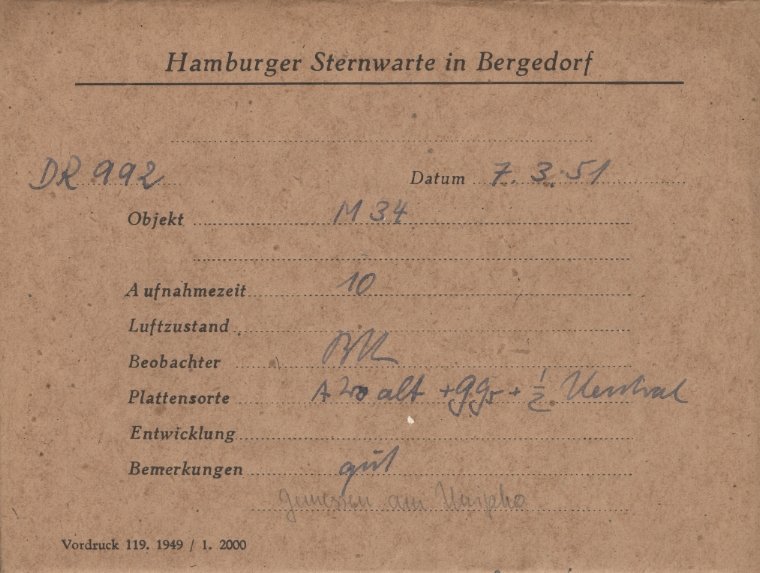 Hamburger Sternwarte in Bergedorf
DR 992 Datum 7. 3. 51
Objekt M 34
Aufnahmezeit 10
Luftzustand
Beobachter
Plattensorte alt + + 1/2
Entwicklung
Bemerkungen gut
gemessen am
Vordruck 119. 1949 / 1. 2000